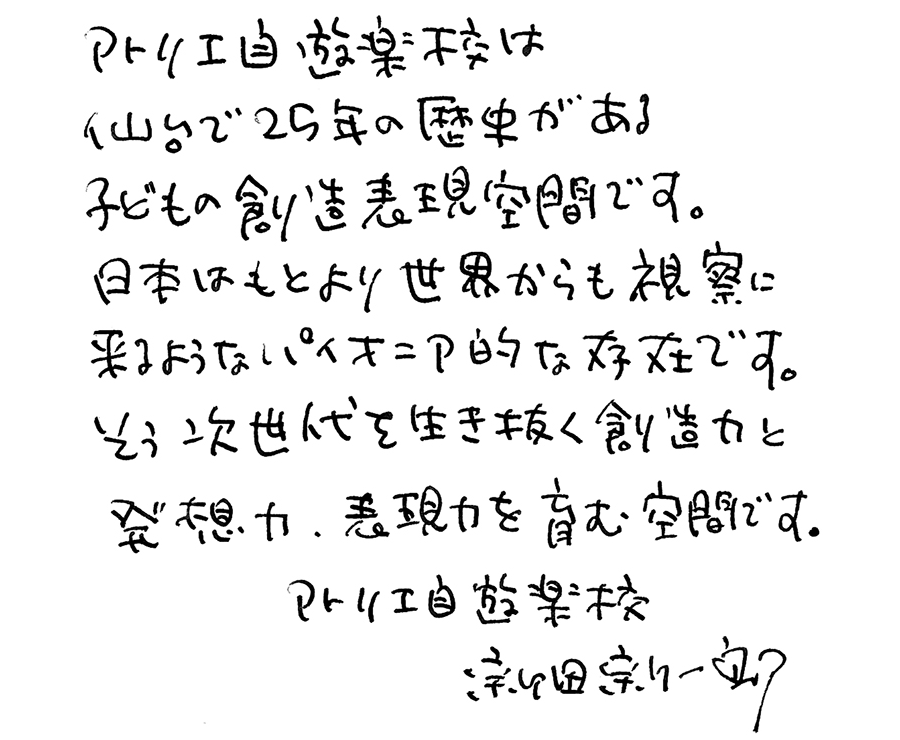 アトリエ自遊楽校は
仙台で25年の歴史がある
子どもの創造表現空間です。
日本はもとより世界からも視察に
来るようなパイオニア的な存在です。
そう次世代を生き抜く創造力と
発想力、表現力を育む空間です。
アトリエ自遊楽校
田一郎